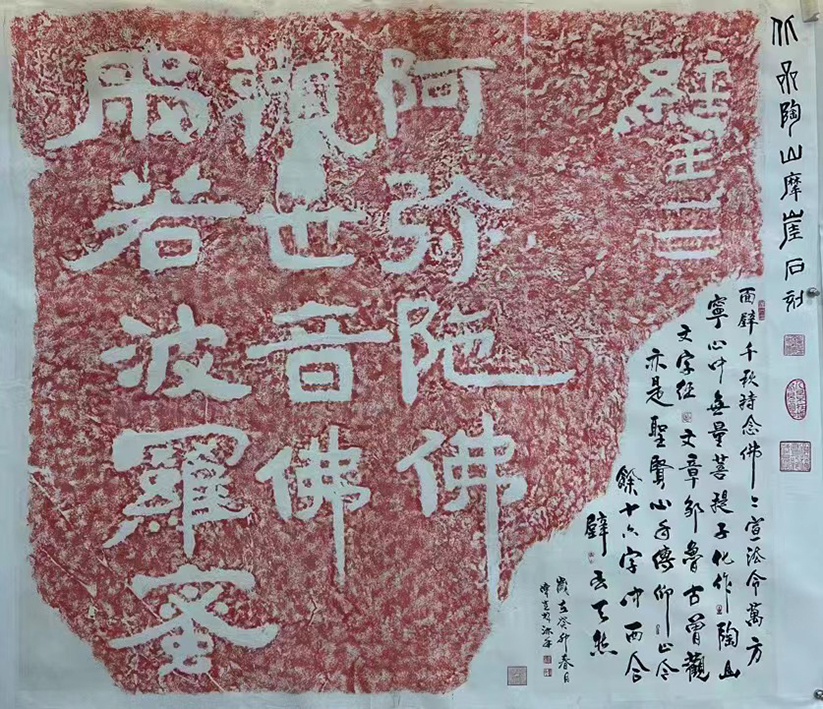 北齊陶山摩崖石刻
經主
阿弥陁佛
觀世音佛
般若波羅蜜
面壁千秋持念佛〻宣法命萬方
寧心中無量菩提子化作陶山
文字經文章鄒魯古曾觀
亦是聖賢心手傳仰止令
餘十六字中西合
壁天然
歲在癸卯春日